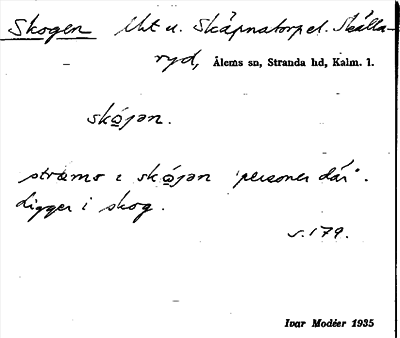 Skogen Lht u. Skäpnatorpet. Skälla-
ryd, Ålems sn, Stranda hd, Kalm. l.
sko̲gən.
ı sko̲gən 'personer där'.
Ligger i skog.
s. 179.
Ivar Modéer 1935